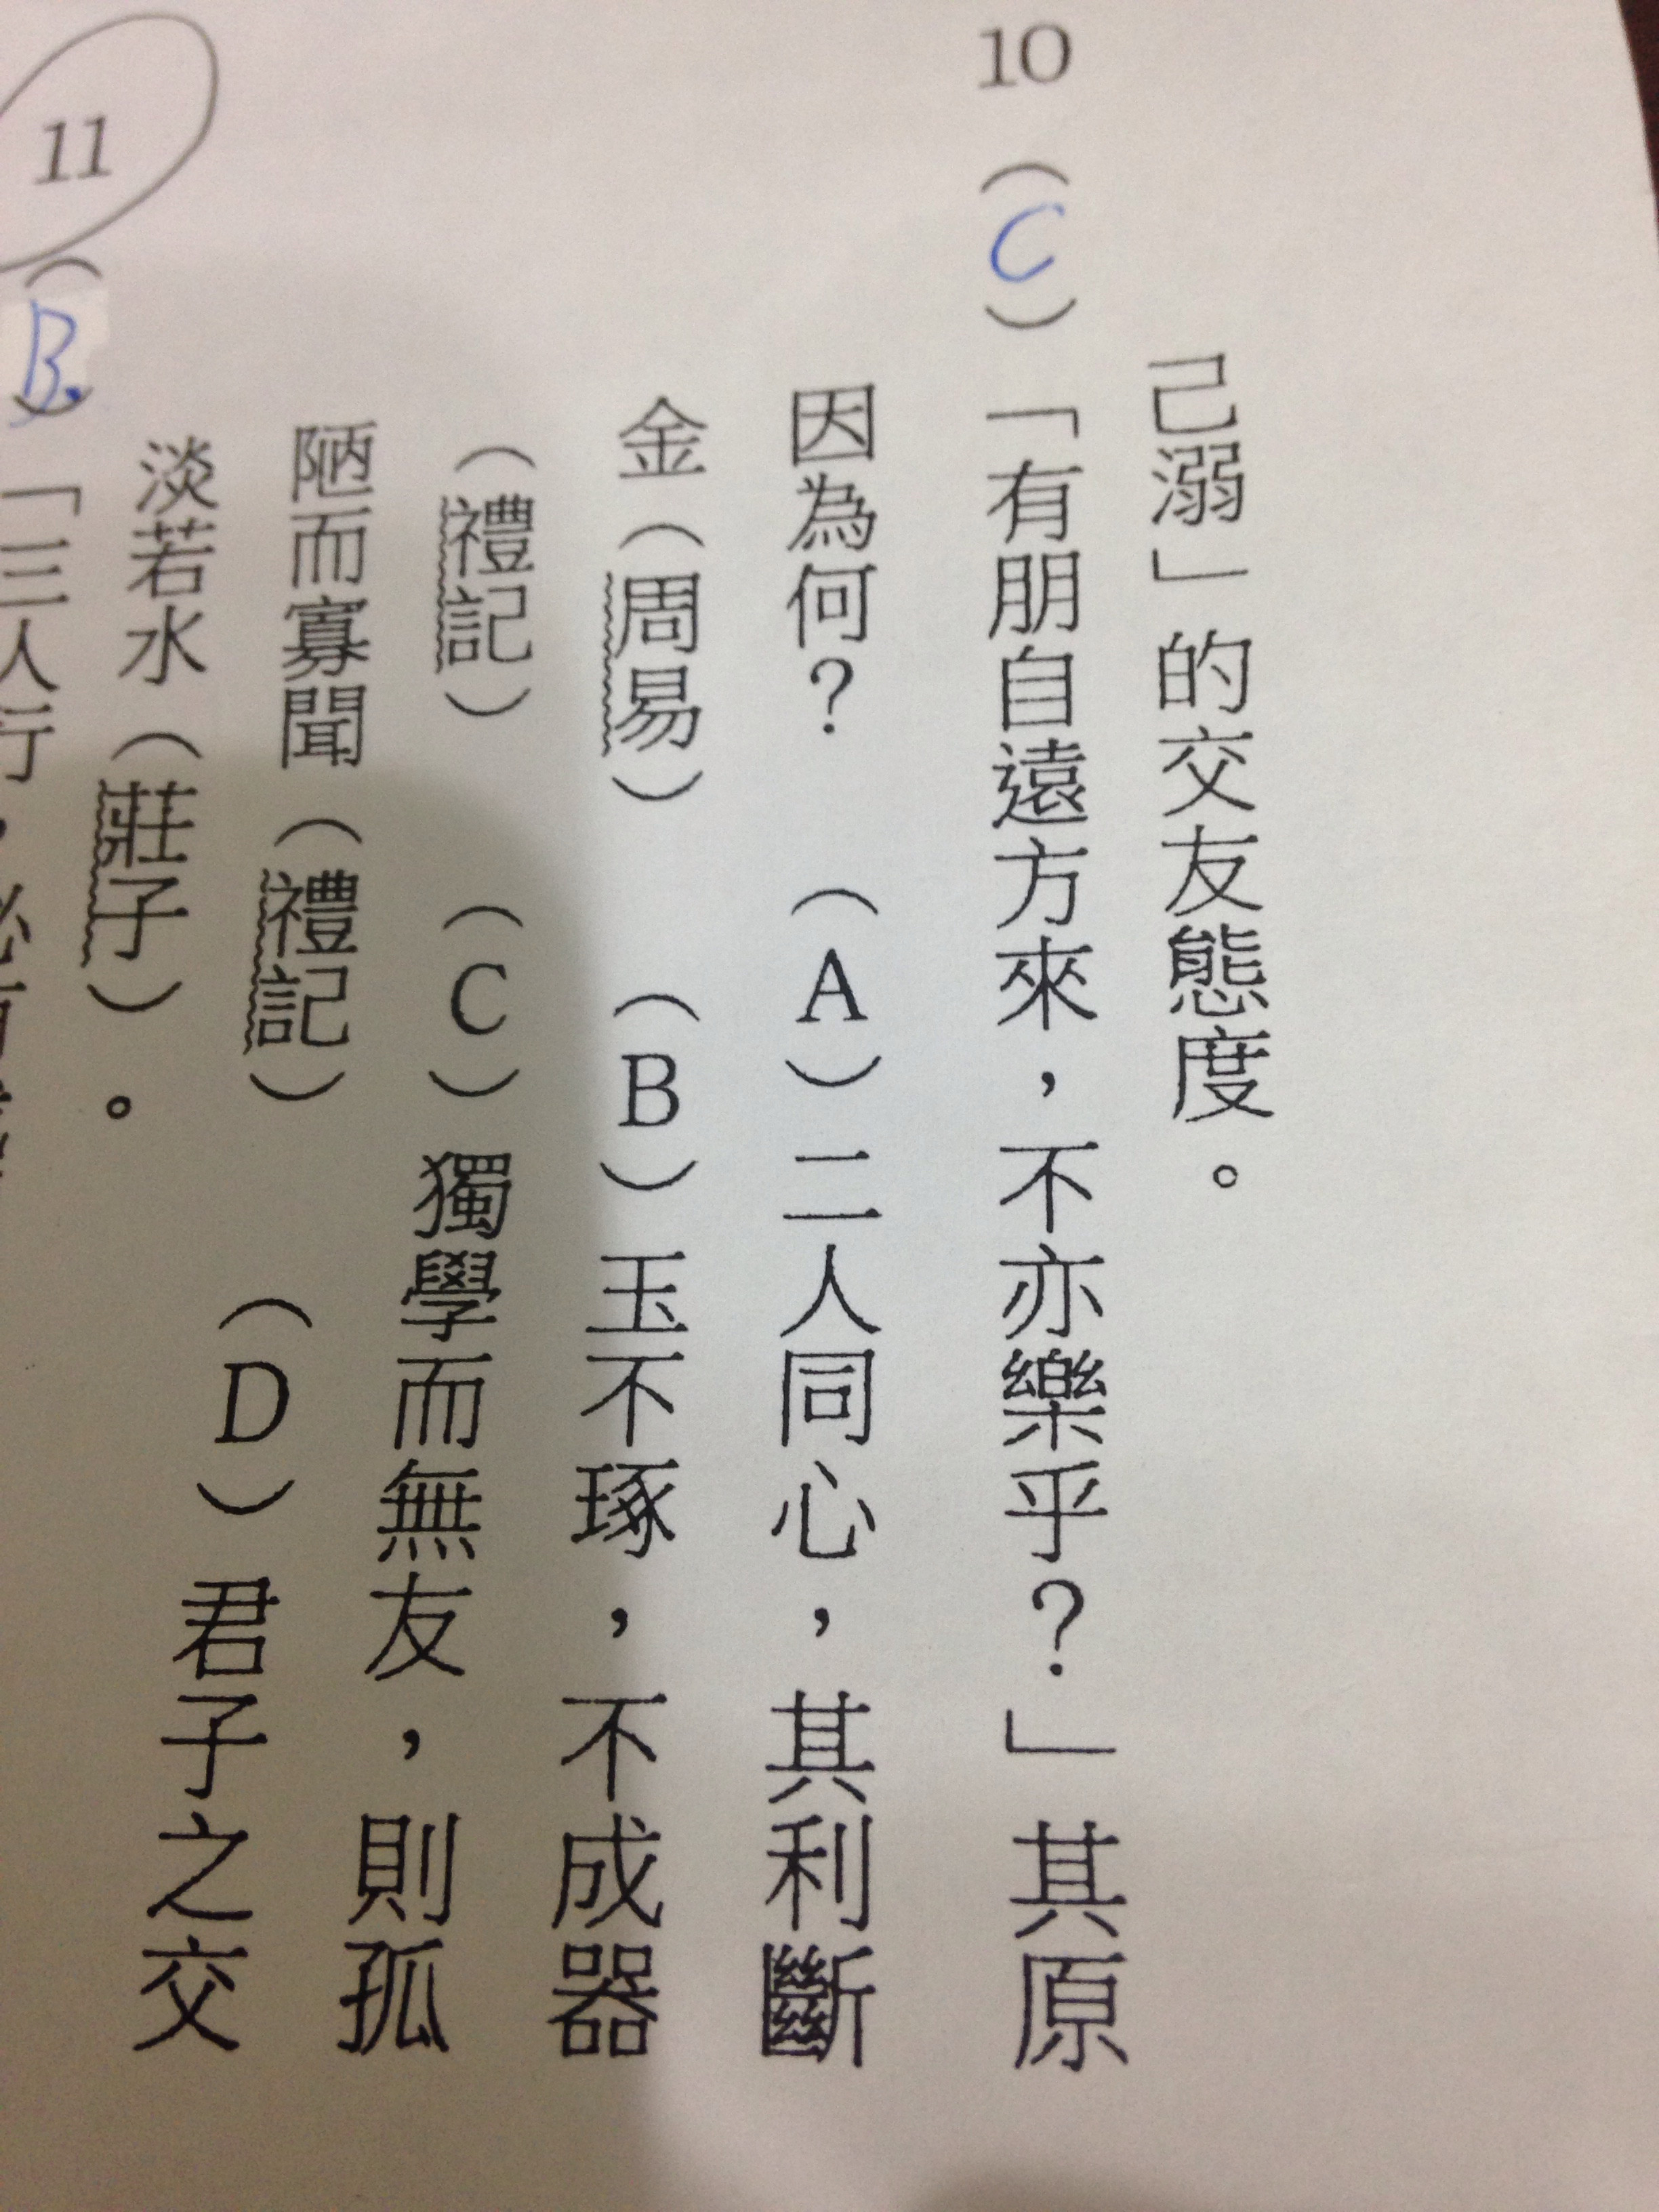 己溺」的交友態度。
10（C）「有朋自遠方來，不亦樂乎？」其原
因為何？（A）二人同心，其利斷
金（周易）（B）玉不琢，不成器
（禮記）（C）獨學而無友，則孤
陋而寡聞（禮記）（D）君子之交
淡若水（莊子）。
11（B.）「三人行，必有